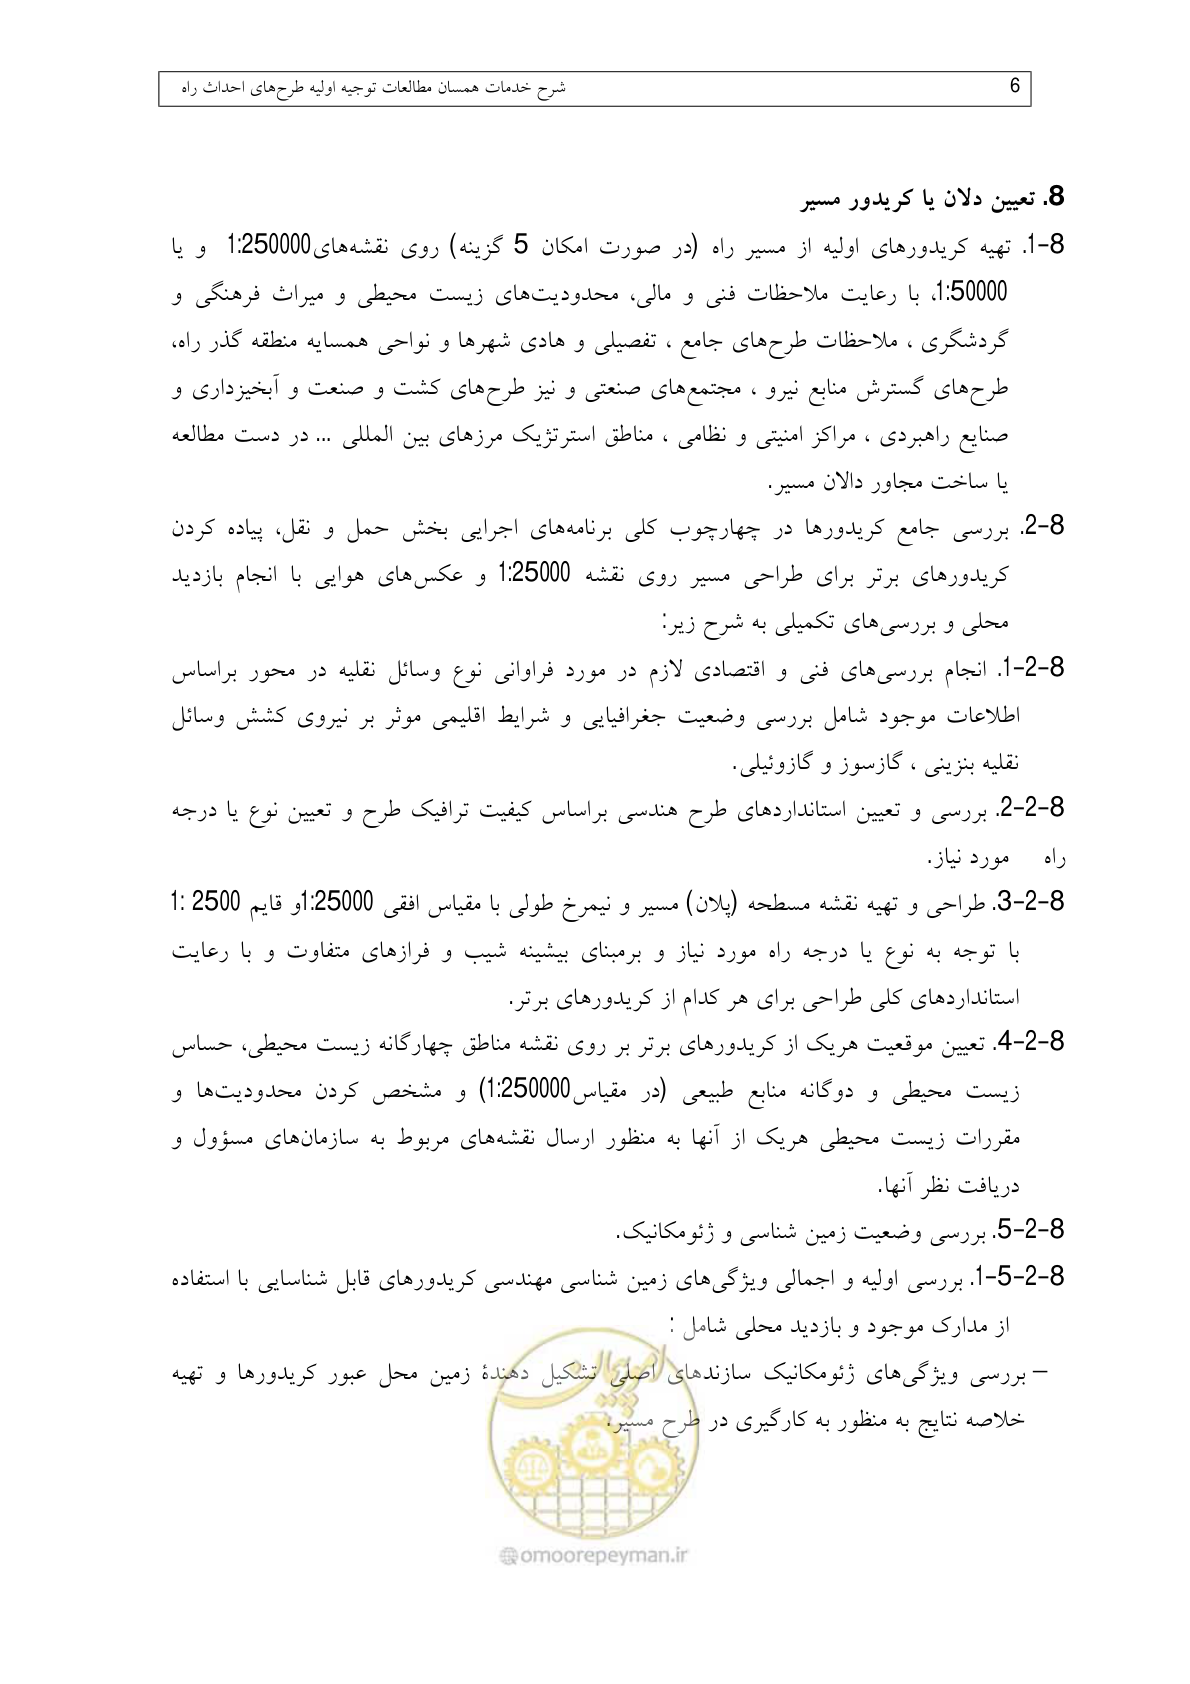 6
شرح خدمات همسان مطالعات توجیه اولیه طرح‌های احداث راه
8. تعیین دلان یا کریدور مسیر
8-1. تهیه کریدورهای اولیه از مسیر راه (در صورت امکان 5 گزینه) روی نقشه‌های1:250000 و یا
1:50000، با رعایت ملاحظات فنی و مالی، محدودیت‌های زیست محیطی و میراث فرهنگی و
گردشگری ، ملاحظات طرح‌های جامع ، تفصیلی و هادی شهرها و نواحی همسایه منطقه گذر راه،
طرح‌های گسترش منابع نیرو ، مجتمع‌های صنعتی و نیز طرح‌های کشت و صنعت و آبخیزداری و
صنایع راهبردی ، مراکز امنیتی و نظامی ، مناطق استرتژیک مرزهای بین المللی ... در دست مطالعه
یا ساخت مجاور دالان مسیر.
8-2. بررسی جامع کریدورها در چهارچوب کلی برنامه‌های اجرایی بخش حمل و نقل، پیاده کردن
کریدورهای برتر برای طراحی مسیر روی نقشه 1:25000 و عکس‌های هوایی با انجام بازدید
محلی و بررسی‌های تکمیلی به شرح زیر:
8-2-1. انجام بررسی‌های فنی و اقتصادی لازم در مورد فراوانی نوع وسائل نقلیه در محور براساس
اطلاعات موجود شامل بررسی وضعیت جغرافیایی و شرایط اقلیمی موثر بر نیروی کشش وسائل
نقلیه بنزینی ، گازسوز و گازوئیلی.
8-2-2. بررسی و تعیین استانداردهای طرح هندسی براساس کیفیت ترافیک طرح و تعیین نوع یا درجه
راه مورد نیاز.
8-2-3. طراحی و تهیه نقشه مسطحه (پلان) مسیر و نیمرخ طولی با مقیاس افقی 1:25000و قایم 2500 :1
با توجه به نوع یا درجه راه مورد نیاز و برمبنای بیشینه شیب و فرازهای متفاوت و با رعایت
استانداردهای کلی طراحی برای هر کدام از کریدورهای برتر.
8-2-4. تعیین موقعیت هریک از کریدورهای برتر بر روی نقشه مناطق چهارگانه زیست محیطی، حساس
زیست محیطی و دوگانه منابع طبیعی (در مقیاس1:250000) و مشخص کردن محدودیت‌ها و
مقررات زیست محیطی هریک از آنها به منظور ارسال نقشه‌های مربوط به سازمان‌های مسؤول و
دریافت نظر آنها.
8-2-5. بررسی وضعیت زمین شناسی و ژئومکانیک.
8-2-5-1. بررسی اولیه و اجمالی ویژگی‌های زمین شناسی مهندسی کریدورهای قابل شناسایی با استفاده
از مدارک موجود و بازدید محلی شامل :
– بررسی ویژگی‌های ژئومکانیک سازندهای اصلی تشکیل دهندۀ زمین محل عبور کریدورها و تهیه
خلاصه نتایج به منظور به کارگیری در طرح مسیر.
امور پیمان
omoorepeyman.ir